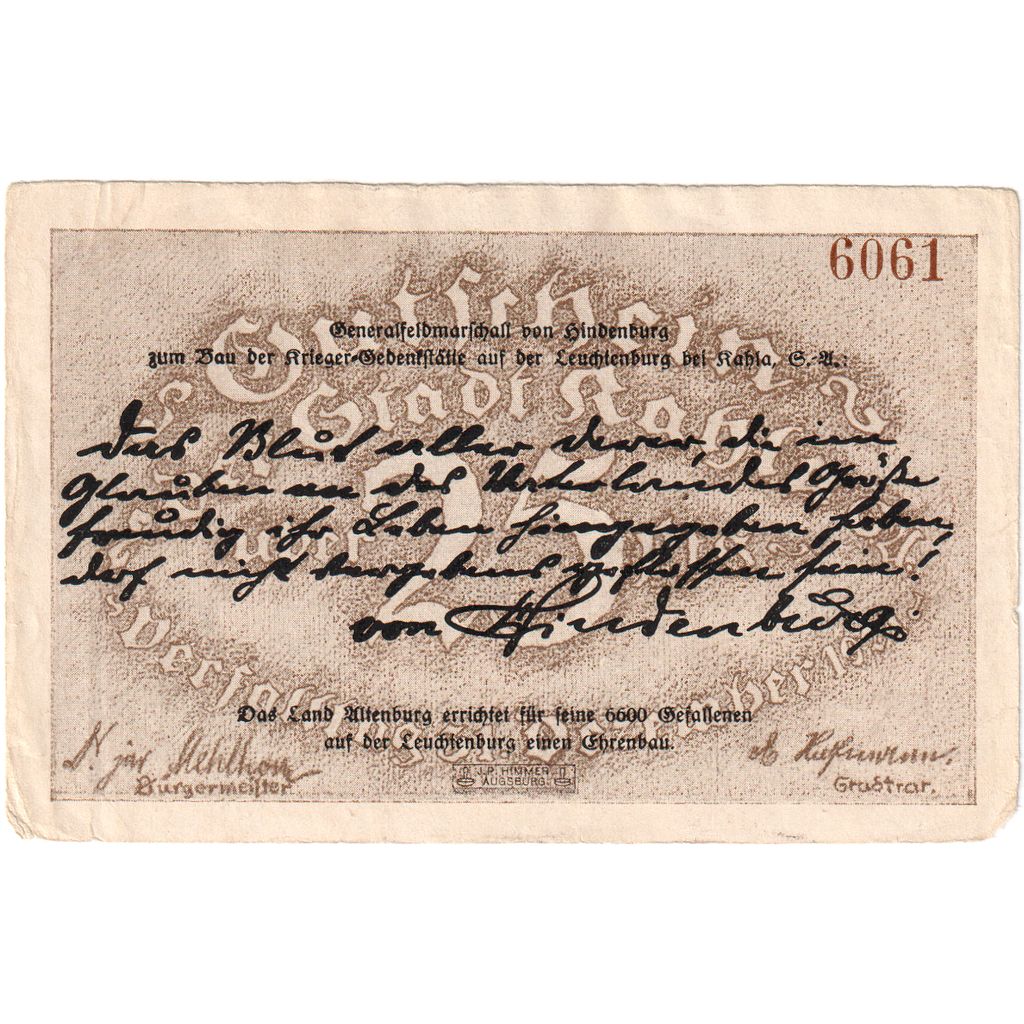 6061
Gutschein
Generalfeldmarschall von Hindenburg
zum Bau der Krieger-Gedenkstätte auf der Leuchtenburg bei Kahla, S.-A.:
Stadt Kahla
Das Blut aller derer, die im
Glauben an des Vaterlandes Größe
freudig ihr Leben hingegeben haben,
darf nicht vergebens geflossen sein!
25
von Hindenburg
Das Land Altenburg errichtet für seine 6600 Gefallenen
auf der Leuchtenburg einen Ehrenbau.
Bürgermeister
J.P. HIMMER
AUGSBURG.